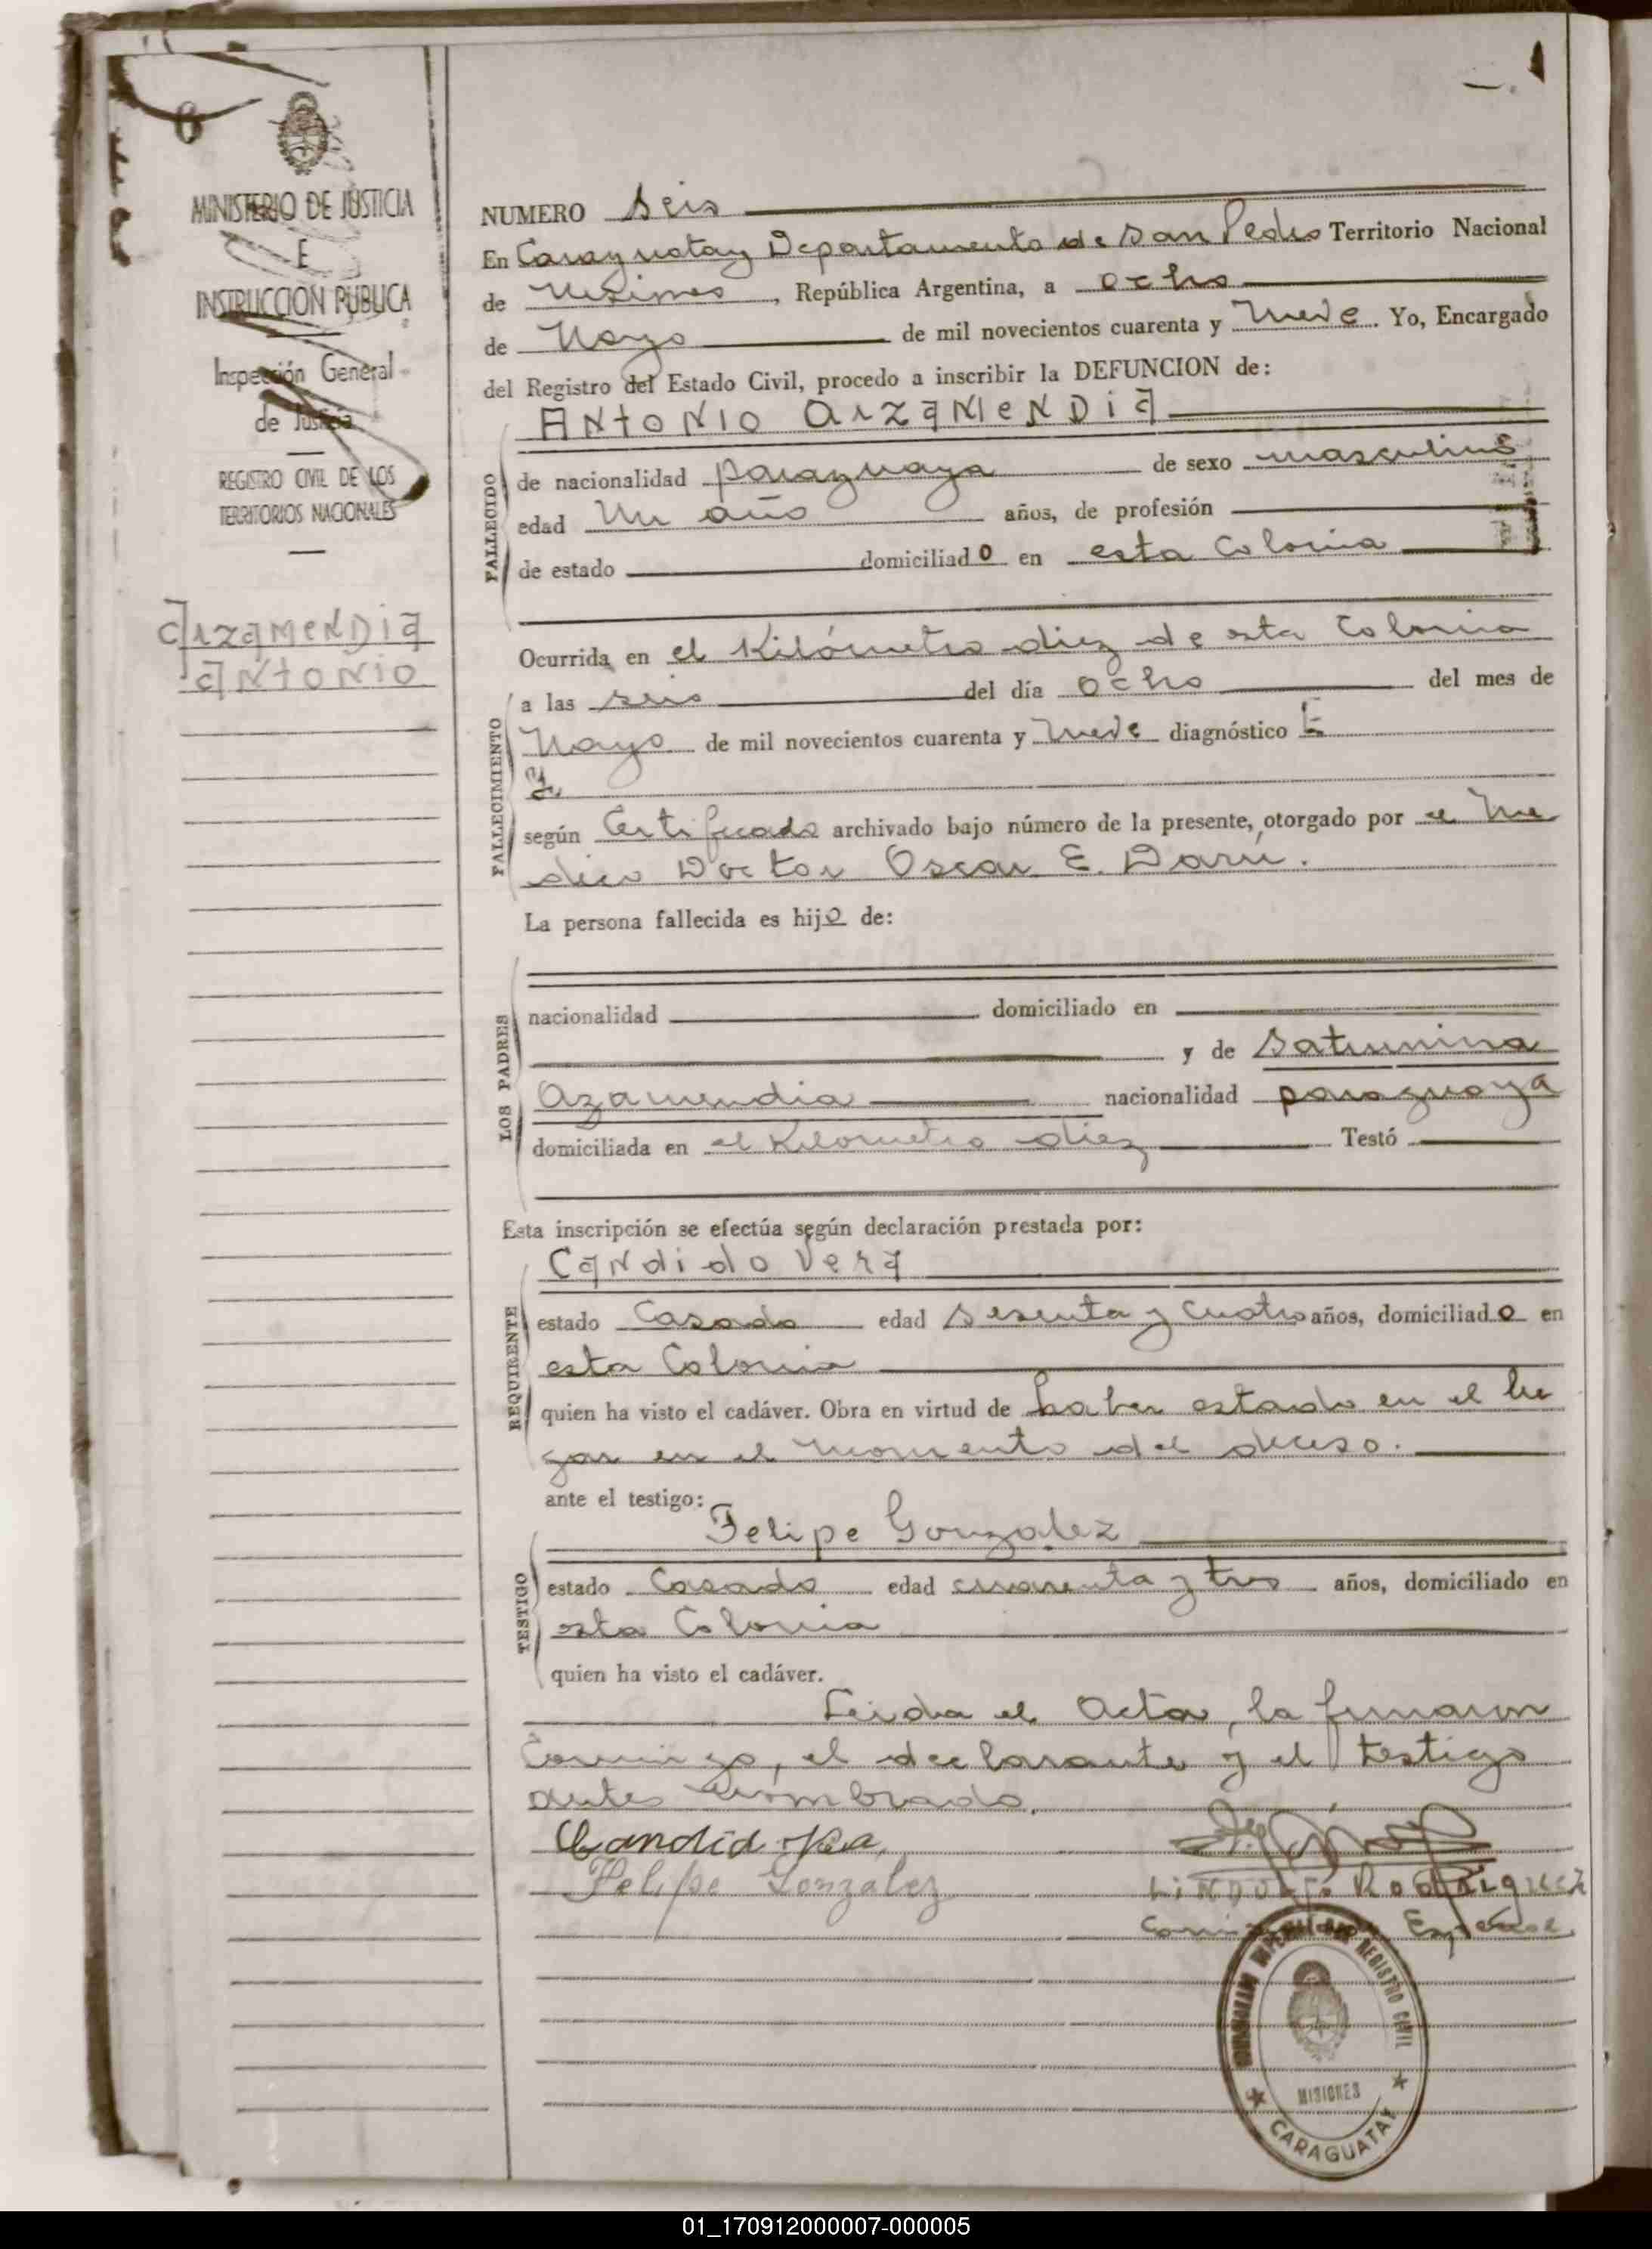 MINISTERIO DE JUSTICIA
E
INSTRUCCION PUBLICA
Inspección General
de Justicia
REGISTRO CIVIL DE LOS
TERRITORIOS NACIONALES
Arzamendia
Antonio
NUMERO Seis
En Caraguatay Departamento de San Pedro Territorio Nacional
de Misiones, República Argentina, a ocho
de Mayo de mil novecientos cuarenta y nueve. Yo, Encargado
del Registro del Estado Civil, procedo a inscribir la DEFUNCION de:
ANtoNio ArzaMeNDia
FALLECIDO
de nacionalidad paraguaya de sexo masculino
edad Un año años, de profesión
de estado domiciliado en esta Colonia
Ocurrida en el Kilómetro diez de esta Colonia
FALLECIMIENTO
a las seis del día ocho del mes de
Mayo de mil novecientos cuarenta y nueve diagnóstico E
según Certificado archivado bajo número de la presente, otorgado por el Me
dico Doctor Oscar E. Darú.
La persona fallecida es hijo de:
LOS PADRES
nacionalidad domiciliado en
y de Saturnina
Azamendia nacionalidad paraguaya
domiciliada en el Kilometro diez Testó
Esta inscripción se efectúa según declaración prestada por:
Candido Vera
REQUIRENTE
estado Casado edad Sesenta y Cuatro años, domiciliado en
esta Colonia
quien ha visto el cadáver. Obra en virtud de haber estado en el lu
gar en el momento del deceso.
ante el testigo:
Felipe Gonzalez
TESTIGO
estado Casado edad cuarenta y tres años, domiciliado en
esta Colonia
quien ha visto el cadáver.
Leida el Acta, la firmaron
Conmigo, el declarante y el testigo
antes nombrado.
Candid
Felipe Gonzalez
Rodriguez
REGISTRO CIVIL
MISIONES
CARAGUATAY
01_170912000007-000005